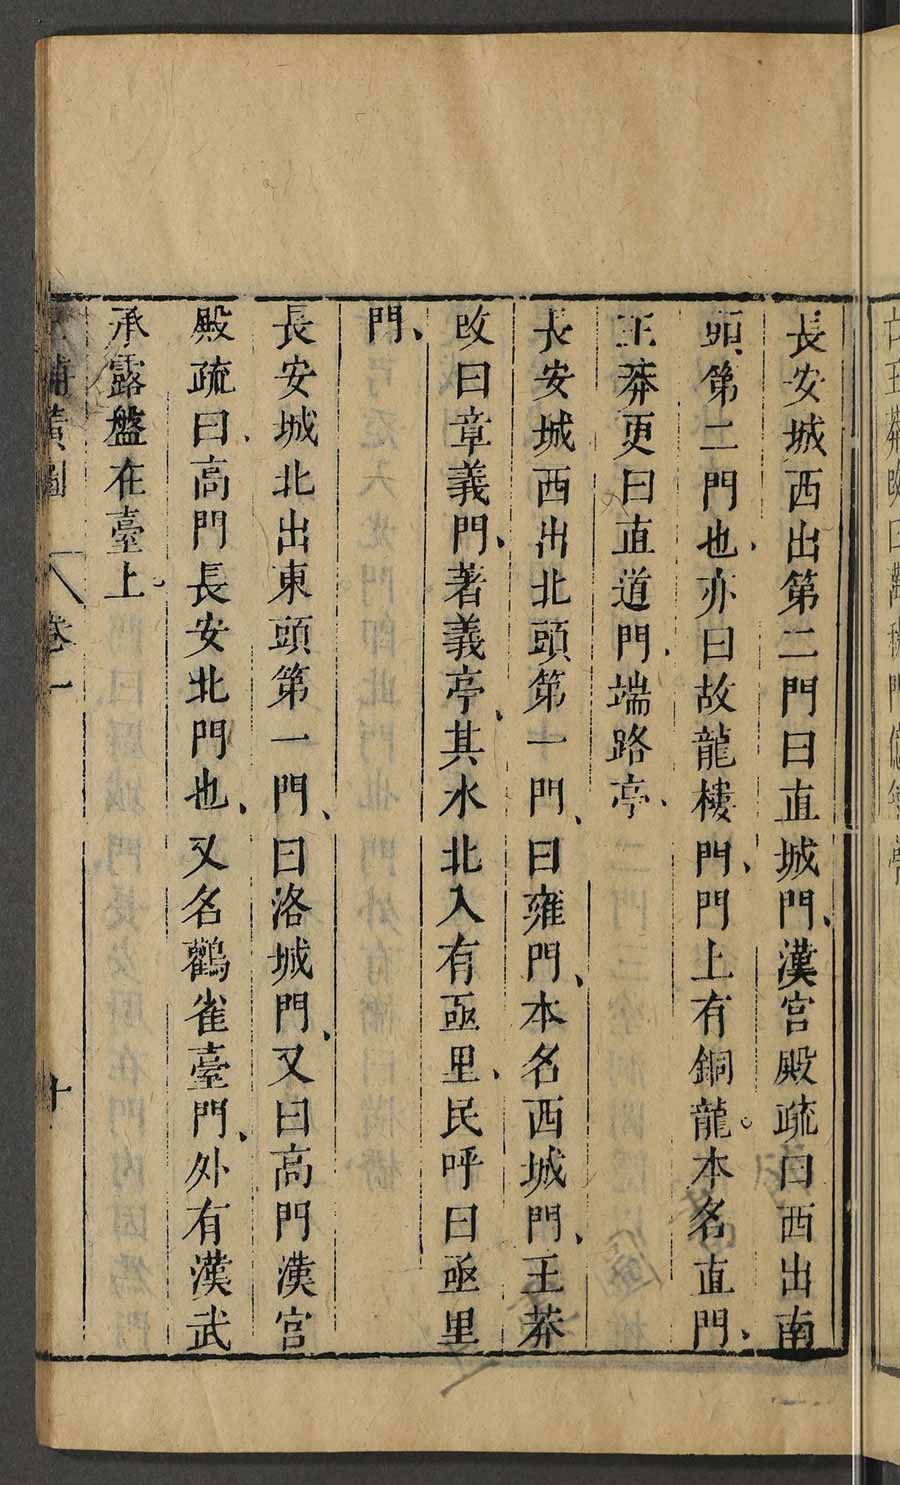 長安城西出第二門曰直城門、漢宮殿疏曰西出南
頭、第二門也、亦曰故龍樓門、門上有銅龍。本名直門、
王莽更曰直道門、端路亭、
長安城西出北頭第一門、曰雍門、本名西城門、王莽
改曰章義門、著義亭、其水北入有亟里、民呼曰亟里
門、
長安城北出東頭第一門、曰洛城門、又曰高門漢宮
殿疏曰、高門長安北門也、又名鸛雀臺門、外有漢武
承露盤在臺上。
輔黃圖 卷一 十